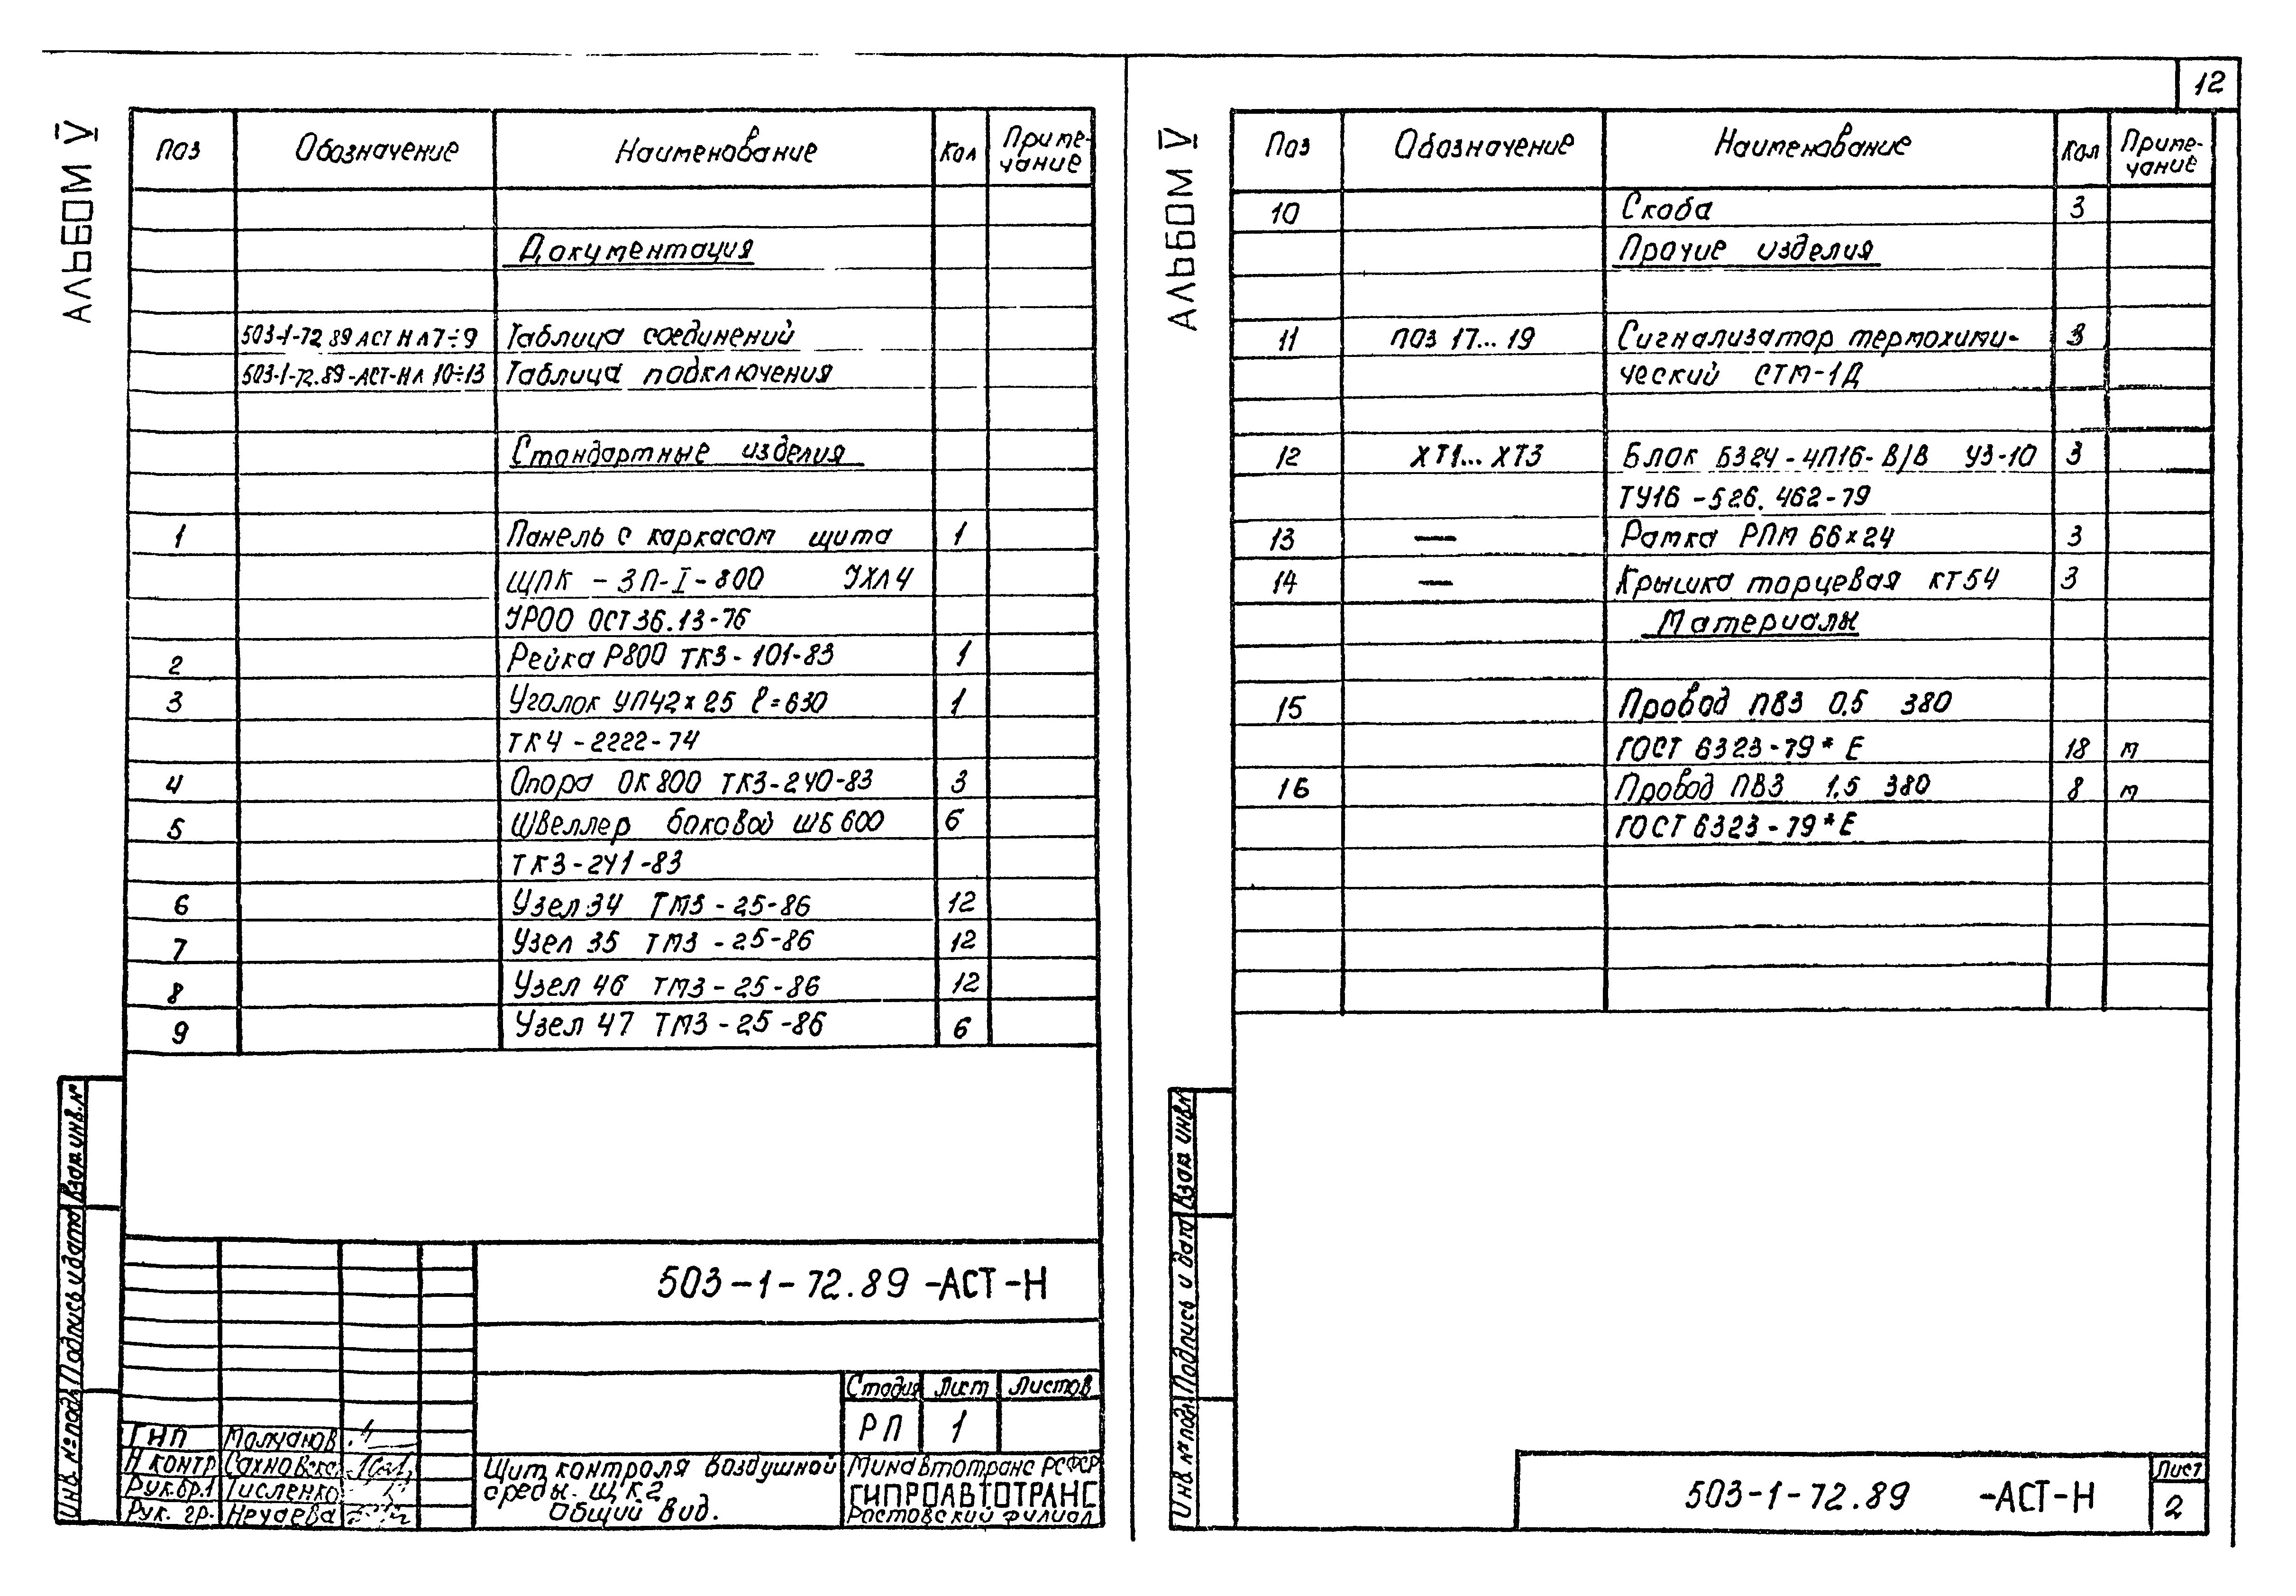 АЛЬБОМ V
Поз Обозначение Наименование Кол Приме-
чание
Документация
503-1-72.89 АСТ Н Л7÷9 Таблица соединений
503-1-72.89-АСТ-Н Л 10÷13 Таблица подключения
Стандартные изделия
1 Панель с каркасом щита 1
ЩПК - ЗП-I-800 УХЛ4
УР00 ОСТ36.13-76
2 Рейка Р800 ТК3-101-83 1
3 Уголок УП42×25 ℓ=630 1
ТК4-2222-74
4 Опора ОК800 ТК3-240-83 3
5 Швеллер боковой ШБ600 6
ТК3-241-83
6 Узел 34 ТМ3-25-86 12
7 Узел 35 ТМ3-25-86 12
8 Узел 46 ТМ3-25-86 12
9 Узел 47 ТМ3-25-86 6
Инв. № подл. Подпись и дата Взам инв. №
503-1-72.89-АСТ-Н
Стадия Лист Листов
РП 1
ГИП
Н контр
Рук.бр.1 Тисленко
Рук. гр. Нечаева
Щит контроля воздушной
среды. ЩК2
Общий вид.
Минавтотранс РСФСР
ГИПРОАВТОТРАНС
Ростовский филиал
12
АЛЬБОМ V
Поз Обозначение Наименование Кол Приме-
чание
10 Скоба 3
Прочие изделия
11 поз 17...19 Сигнализатор термохими- 3
ческий СТМ-1Д
12 ХТ1...ХТ3 Блок БЗ24-4П16-В/В У3-10 3
ТУ16-526.462-79
13 — Рамка РПМ 66×24 3
14 — Крышка торцевая КТ54 3
Материалы
15 Провод ПВ3 0,5 380
ГОСТ 6323-79*Е 18 м
16 Провод ПВ3 1,5 380 8 м
ГОСТ 6323-79*Е
Инв. № подл. Подпись и дата Взам инв. №
503-1-72.89 -АСТ-Н
Лист
2